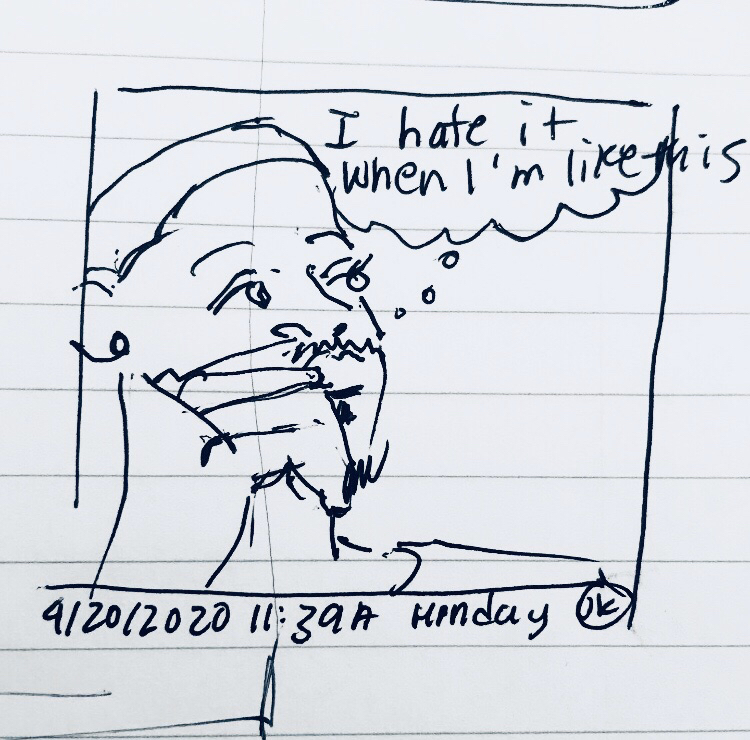 I hate it
when I'm like this
4/20/2020 11:39A Monday OK